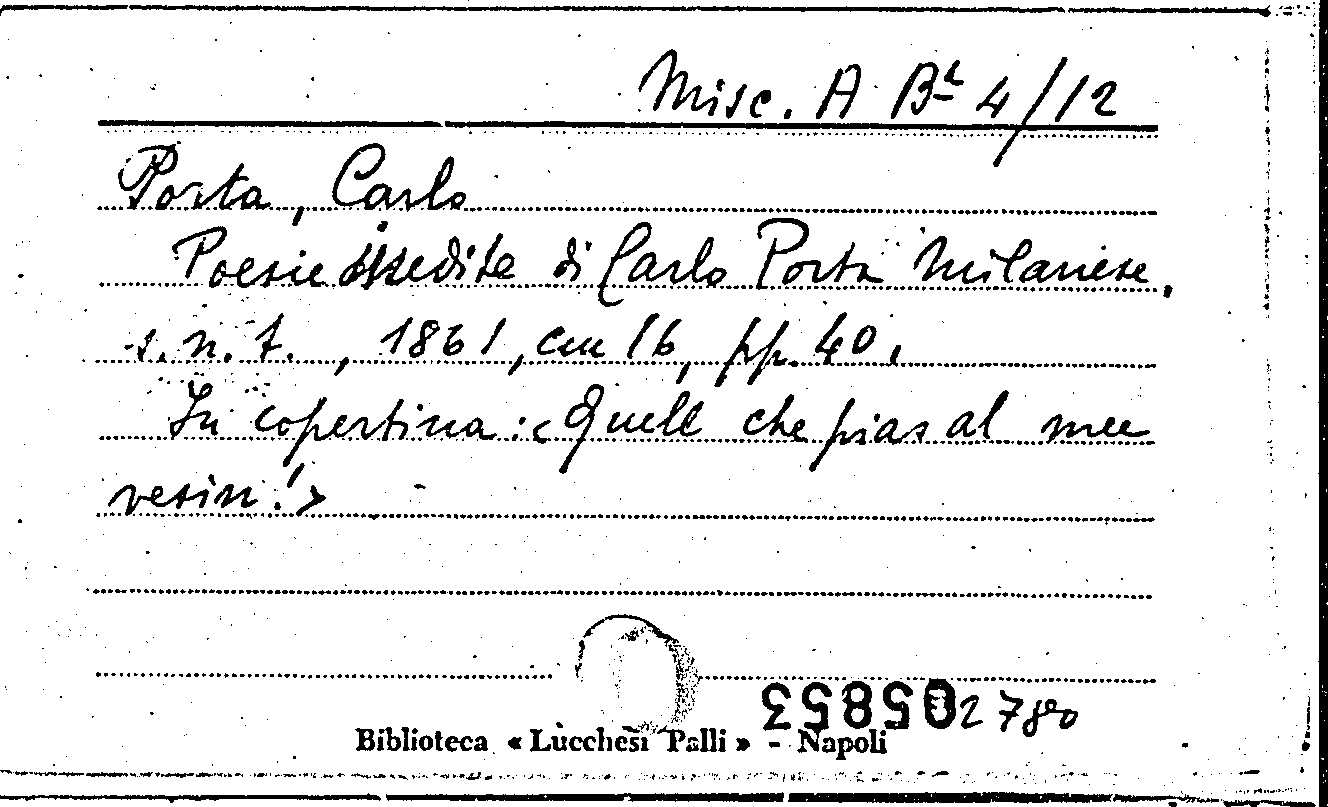 Misc. A Bª 4/12
Porta, Carlo
Poesie inedite di Carlo Porta Milanese,
s.n.t., 1861, cm 16, pp. 40.
In copertina: <Quell che pias al mee
vesin!>
058853
2780
Biblioteca « Lucchesi Palli » - Napoli